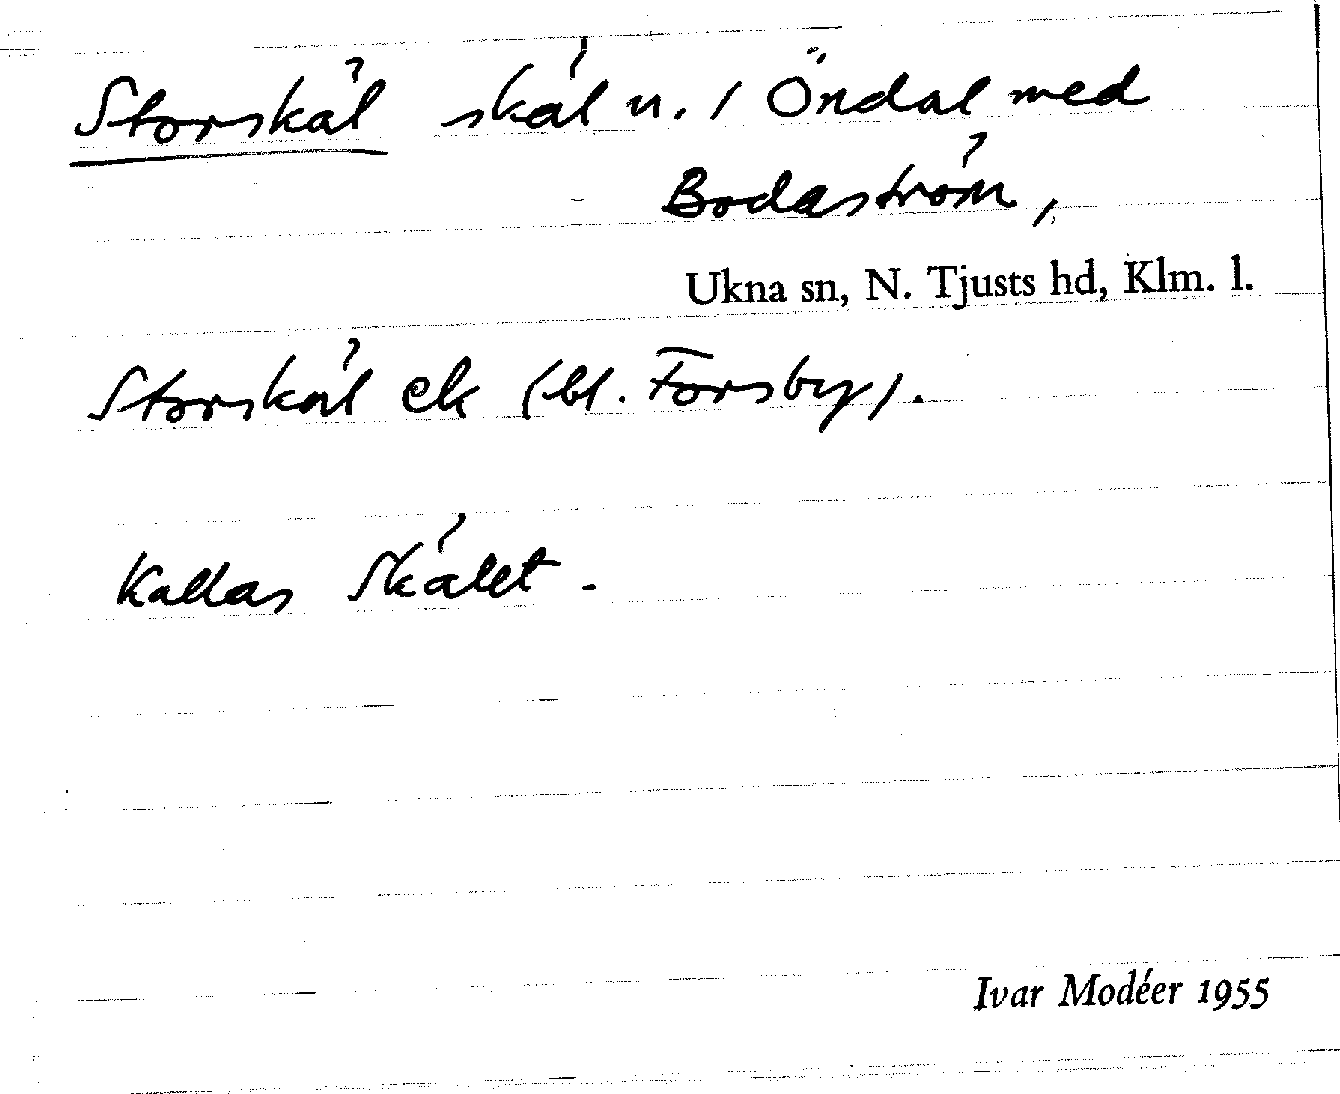 Storskål skål n. / Öndal med
Bodaström,
Ukna sn, N. Tjusts hd, Klm. l.
Storskål ek (bl. Forsby).
Kallas Skålet.
Ivar Modéer 1955